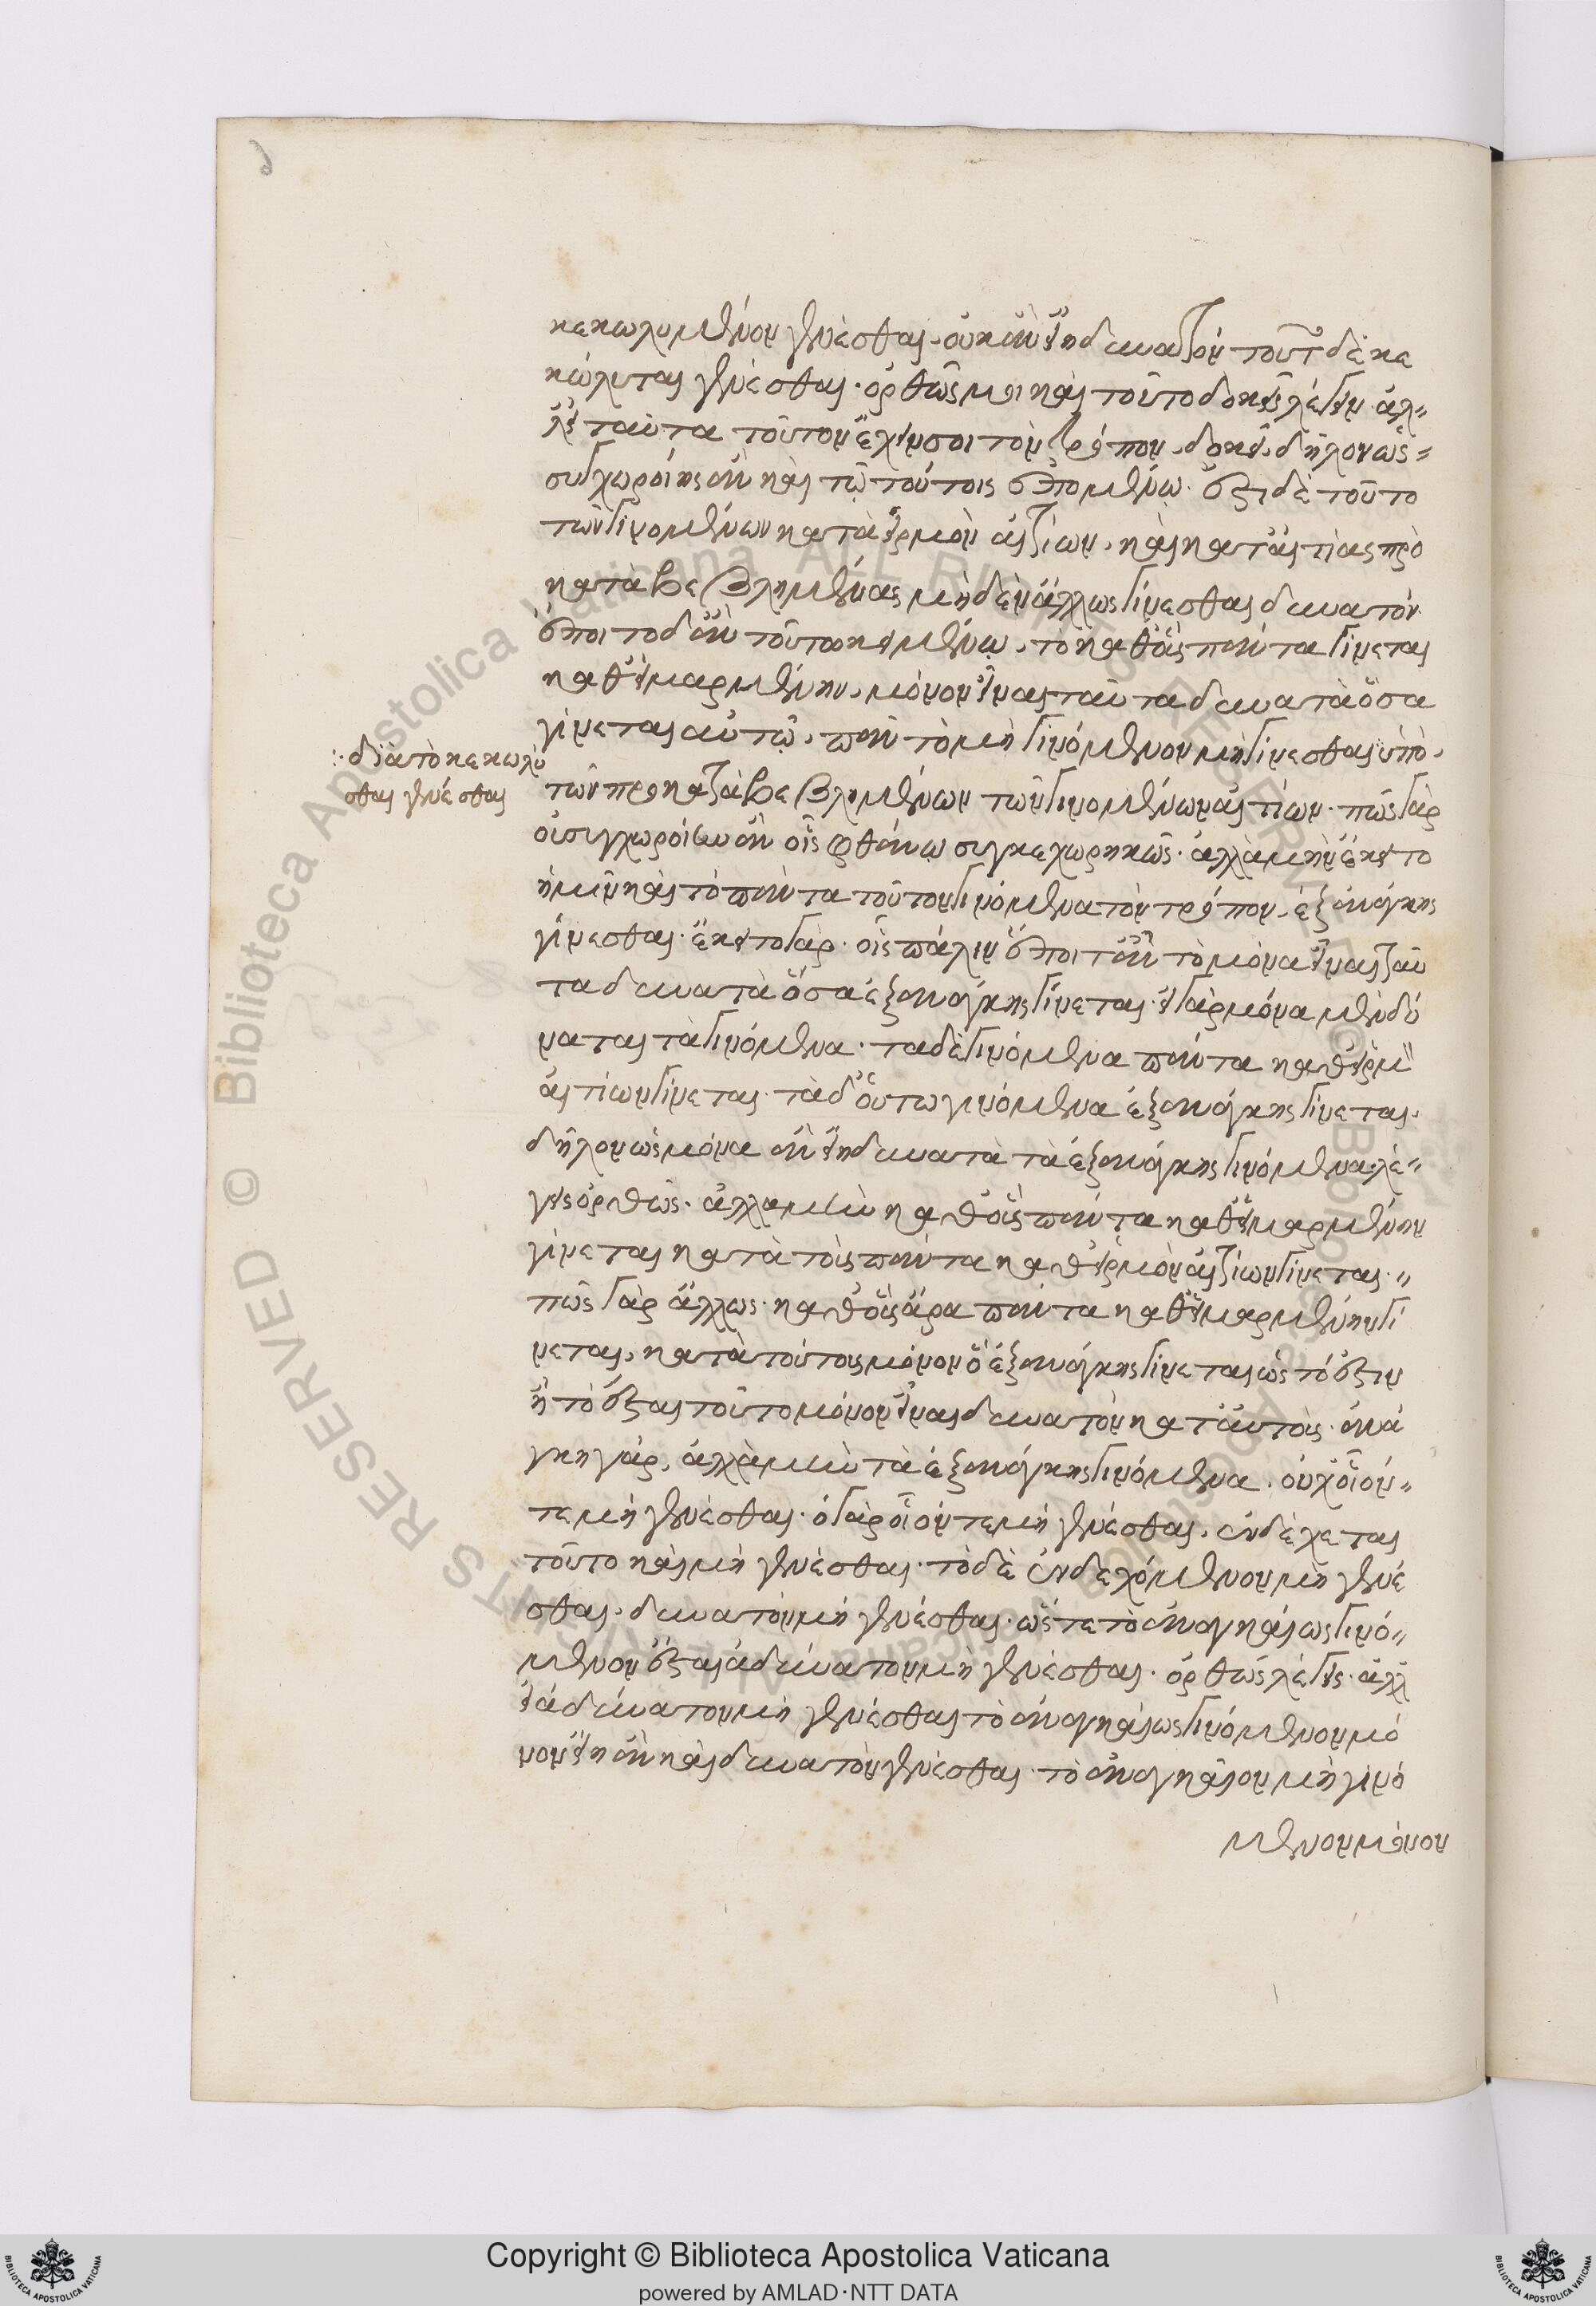 κεκωλυμένον γενέσθαι. οὐκ ἂν εἴη δυνατόν. τοῦτ δὲ κε
κώλυται γενέσθαι. ὀρθῶς μοι καὶ τοῦτο δοκεῖ λέγειν. ἀλ
λ' εἰ ταῦτα τοῦτον ἔχειν σοι τὸν τρόπον δοκεῖ, δῆλον ὡς
συγχωροίης ἂν καὶ τῷ τούτοις ἑπομένῳ. ἔστι δὲ τοῦτο
τῶν γινομένων κατὰ εἱρμὸν αἰτίων, καὶ κατ' αἰτίας προ
καταβεβλημένας μηδὲν ἄλλως γίνεσθαι δυνατόν.
ἕποιτο δ' ἂν τούτῳ κειμένῳ, τὸ καθ' οὓς πάντα γίνεται
καθ' εἱμαρμένην, μόνον εἶναι ταῦτα δυνατὰ ὅσα
γίνεται αὐτῷ, πᾶν τὸ μὴ γινόμενον μὴ γίνεσθαι ὑπὸ
∴ διὰ τὸ κεκωλῦ
σθαι γενέσθαι
τῶν προκαταβεβλημένων τῶν γινομένων αἰτίων. πῶς γὰρ
οὐ συγχωροίην ἂν οἷς φθάνω συγκεχωρηκώς. ἀλλὰ μὴν ἔκειτο
ἡμῖν καὶ τὸ πάντα τοῦτον γινόμενα τὸν τρόπον, ἐξ ἀνάγκης
γίνεσθαι. ἔκειτο γάρ. οἷς πάλιν ἕποιτ' ἂν τὸ μόνα εἶναι ταῦ
τα δυνατὰ ὅσα ἐξ ἀνάγκης γίνεται. εἰ γὰρ μόνα μὲν δύ
ναται τὰ γινόμενα. τὰ δὲ γινόμενα πάντα καθ' εἱρμὸν
αἰτίων γίνεται. τὰ δ' οὕτω γινόμενα ἐξ ἀνάγκης γίνεται.
δῆλον ὡς μόνα ἂν εἴη δυνατὰ τὰ ἐξ ἀνάγκης γινόμενα. λέ
γεις ὀρθῶς. ἀλλὰ μὴν καθ' οὓς πάντα καθ' εἱμαρμένην
γίνεται κατὰ τούς πάντα καθ' εἱρμὸν αἰτίων γίνεται.
πῶς γὰρ ἄλλως. καθ' οὓς ἄρα πάντα καθ' εἱμαρμένην γί
νεται, κατὰ τούτοις μόνον ὃ ἐξ ἀνάγκης γίνεται ὡς τὸ ἔστιν
ἢ τὸ ἔσται τοῦτο μόνον εἶναι δυνατὸν κατ' αὐτούς. ἀνά
γκη γάρ, ἀλλὰ μὴν τὰ ἐξ ἀνάγκης γινόμενα. οὐχ οἷόν
τε μὴ γενέσθαι. ὃ γὰρ οἷόν τε μὴ γενέσθαι, ἐνδέχεται
τοῦτο καὶ μὴ γενέσθαι. τὸ δὲ ἐνδεχόμενον μὴ γενέ
σθαι, δυνατὸν μὴ γενέσθαι. ὥστε τὸ ἀναγκαίως γινό
μενον ἔσται ἀδύνατον μὴ γενέσθαι. ὀρθῶς λέγεις. ἀλλ'
εἰ ἀδύνατον μὴ γενέσθαι τὸ ἀναγκαίως γινόμενον μό
νον εἴη ἂν καὶ δυνατὸν γενέσθαι. τὸ ἀναγκαῖον μὴ γινό
μενον μόνον
Copyright © Biblioteca Apostolica Vaticana
powered by AMLAD·NTT DATA